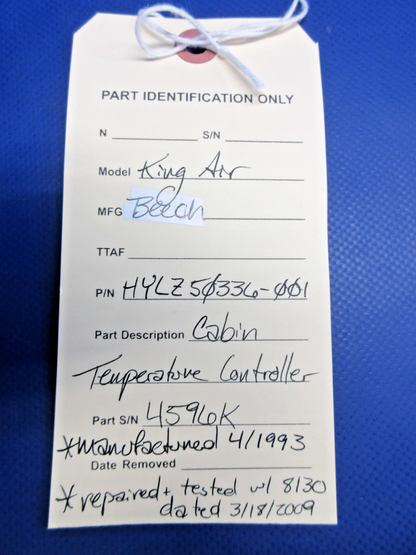 PART IDENTIFICATION ONLY
N S/N
Model King Air
MFG Beech
TTAF
P/N HYLZ50336-001
Part Description Cabin
Temperature Controller
Part S/N 4596K
*manufactured 4/1993
Date Removed
*repaired + tested w/ 8130
dated 3/18/2009